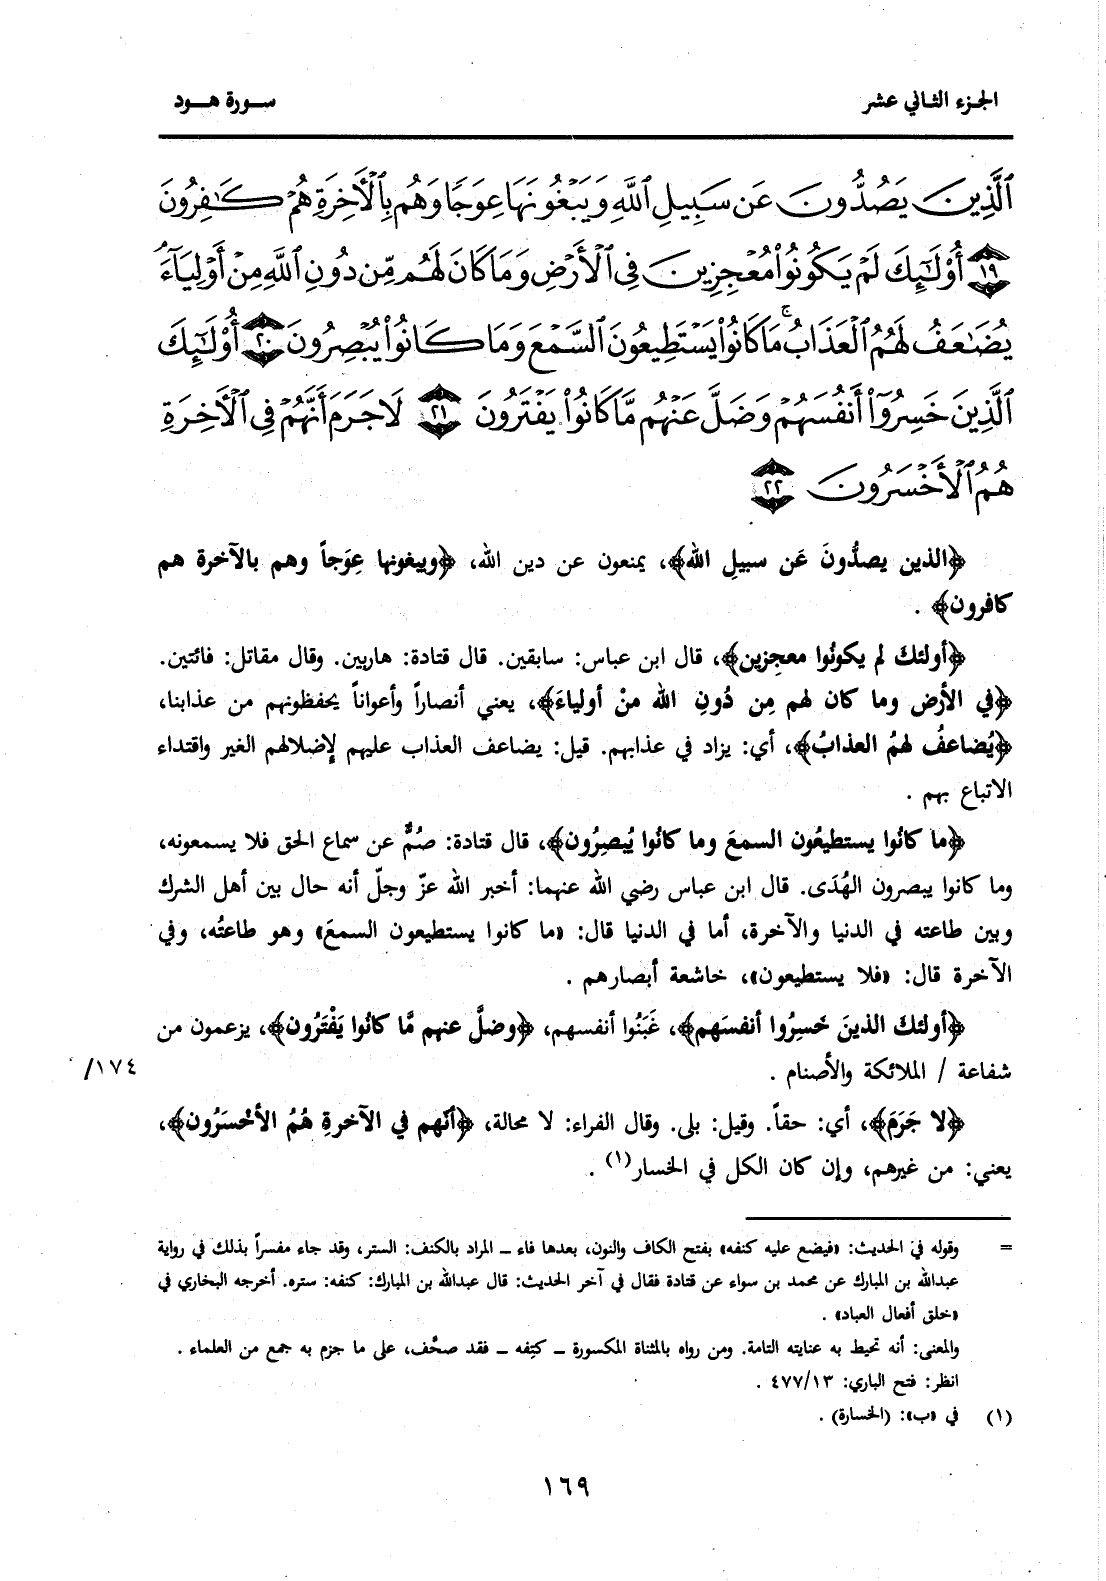 الجزء الثاني عشر
سورة هود
ٱلَّذِينَ يَصُدُّونَ عَن سَبِيلِ ٱللَّهِ وَيَبْغُونَهَا عِوَجًا وَهُم بِٱلْأَخِرَةِ هُمْ كَٰفِرُونَ
١٩ أُوْلَٰٓئِكَ لَمْ يَكُونُوا۟ مُعْجِزِينَ فِى ٱلْأَرْضِ وَمَا كَانَ لَهُم مِّن دُونِ ٱللَّهِ مِنْ أَوْلِيَآءَ
يُضَٰعَفُ لَهُمُ ٱلْعَذَابُ ۚ مَا كَانُوا۟ يَسْتَطِيعُونَ ٱلسَّمْعَ وَمَا كَانُوا۟ يُبْصِرُونَ ٢٠ أُوْلَٰٓئِكَ
ٱلَّذِينَ خَسِرُوٓا۟ أَنفُسَهُمْ وَضَلَّ عَنْهُم مَّا كَانُوا۟ يَفْتَرُونَ ٢١ لَاجَرَمَ أَنَّهُمْ فِى ٱلْأَخِرَةِ
هُمُ ٱلْأَخْسَرُونَ ٢٢
﴿الذين يصدُّونَ عَن سبيلِ الله﴾، يمنعون عن دين الله، ﴿ويبغونها عِوَجاً وهم بالآخرة هم
كافرون﴾ .
﴿أولئكَ لم يكونُوا معجزين﴾، قال ابن عباس: سابقين. قال قتادة: هاربين. وقال مقاتل: فائتين.
﴿في الأرض وما كان لهم مِن دُونِ الله منْ أولياءَ﴾، يعني أنصاراً وأعواناً يحفظونهم من عذابنا،
﴿يُضاعفُ لهمُ العذابُ﴾، أي: يزاد في عذابهم. قيل: يضاعف العذاب عليهم لإضلالهم الغير واقتداء
الاتباع بهم .
﴿ما كانُوا يستطيعُون السمعَ وما كانُوا يُبصِرُون﴾، قال قتادة: صُمٌّ عن سماع الحق فلا يسمعونه،
وما كانوا يبصرون الهُدَى. قال ابن عباس رضي الله عنهما: أخبر الله عزّ وجلّ أنه حال بين أهل الشرك
وبين طاعته في الدنيا والآخرة، أما في الدنيا قال: «ما كانوا يستطيعون السمعَ» وهو طاعتُه، وفي
الآخرة قال: «فلا يستطيعون»، خاشعة أبصارهم .
﴿أولئكَ الذينَ خَسِرُوا أنفسَهم﴾، غَبَنُوا أنفسهم، ﴿وضلَّ عنهم مَّا كانُوا يَفْتَرُون﴾، يزعمون من
شفاعة / الملائكة والأصنام .
١٧٤/
﴿لا جَرَمَ﴾، أي: حقاً. وقيل: بلى. وقال الفراء: لا محالة، ﴿أنّهم في الآخرةِ هُمُ الأخْسَرُون﴾،
يعني: من غيرهم، وإن كان الكل في الخسار(١) .
= وقوله في الحديث: «فيضع عليه كنفه» بفتح الكاف والنون، بعدها فاء ــ المراد بالكنف: الستر، وقد جاء مفسراً بذلك في رواية
عبدالله بن المبارك عن محمد بن سواء عن قتادة فقال في آخر الحديث: قال عبدالله بن المبارك: كنفه: ستره. أخرجه البخاري في
«خلق أفعال العباد» .
والمعنى: أنه تحيط به عنايته التامة. ومن رواه بالمثناة المكسورة ــ كتِفه ــ فقد صحّف، على ما جزم به جمع من العلماء .
انظر: فتح الباري: ٤٧٧/١٣ .
(١) في «ب»: (الخسارة) .
١٦٩